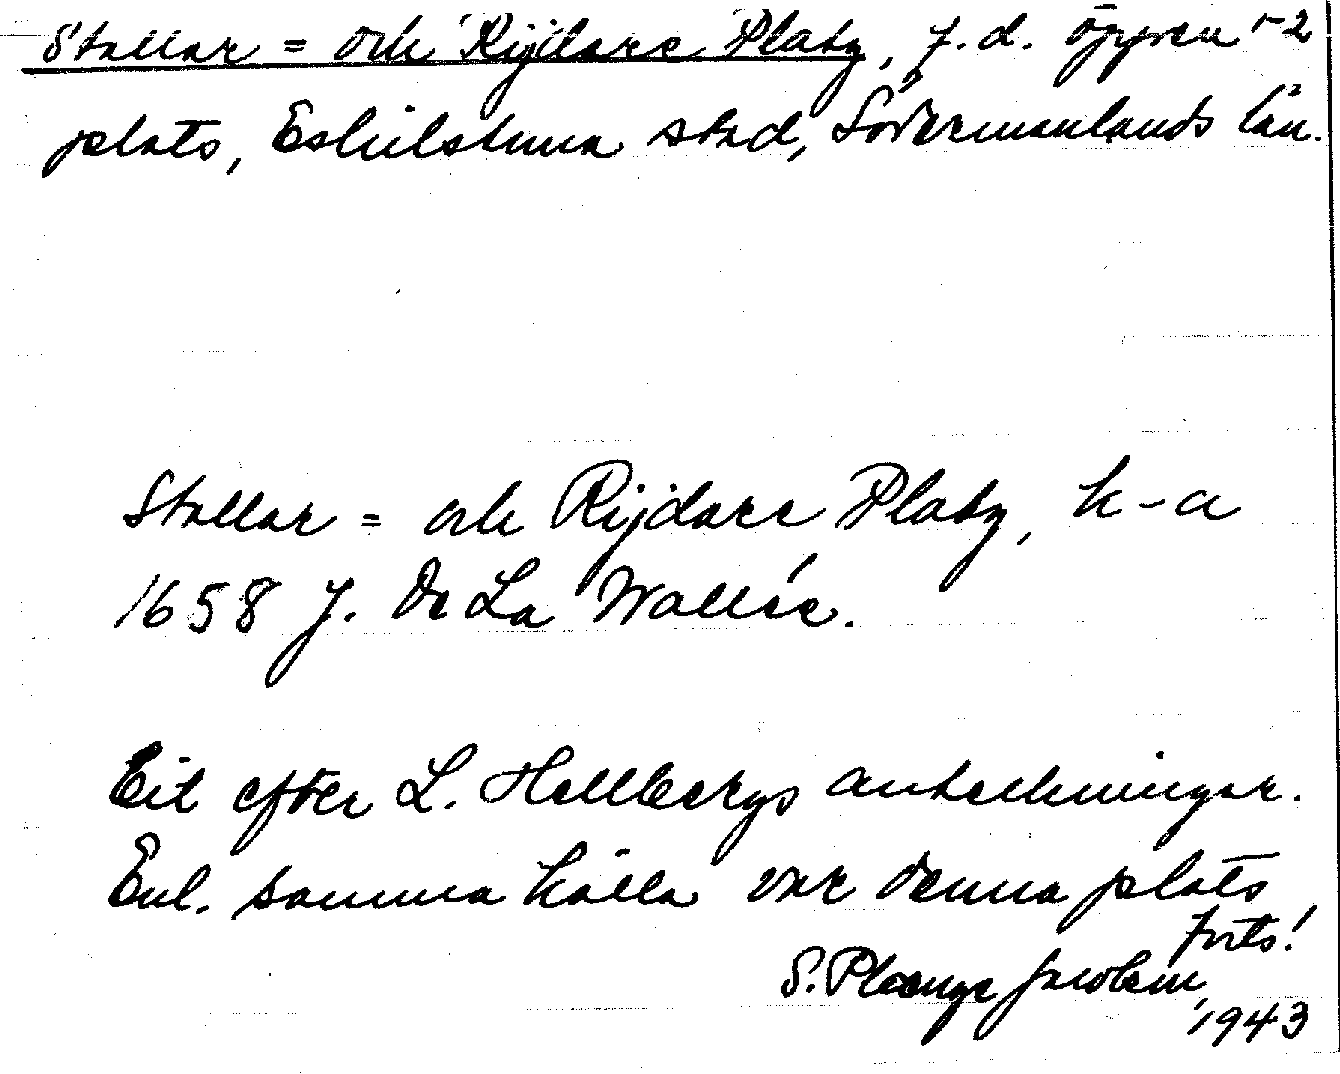 Stallar = och Rijdare Platz, f.d. öppen 1-2
plats, Eskilstuna stad, Södermanlands län.
Stallar = och Rijdare Platz, k-a
1658 J. De La Wallée.
Cit efter L. Hellbergs anteckningar.
Enl. samma källa var denna plats
forts!
S. Plænge Jacobson
1943